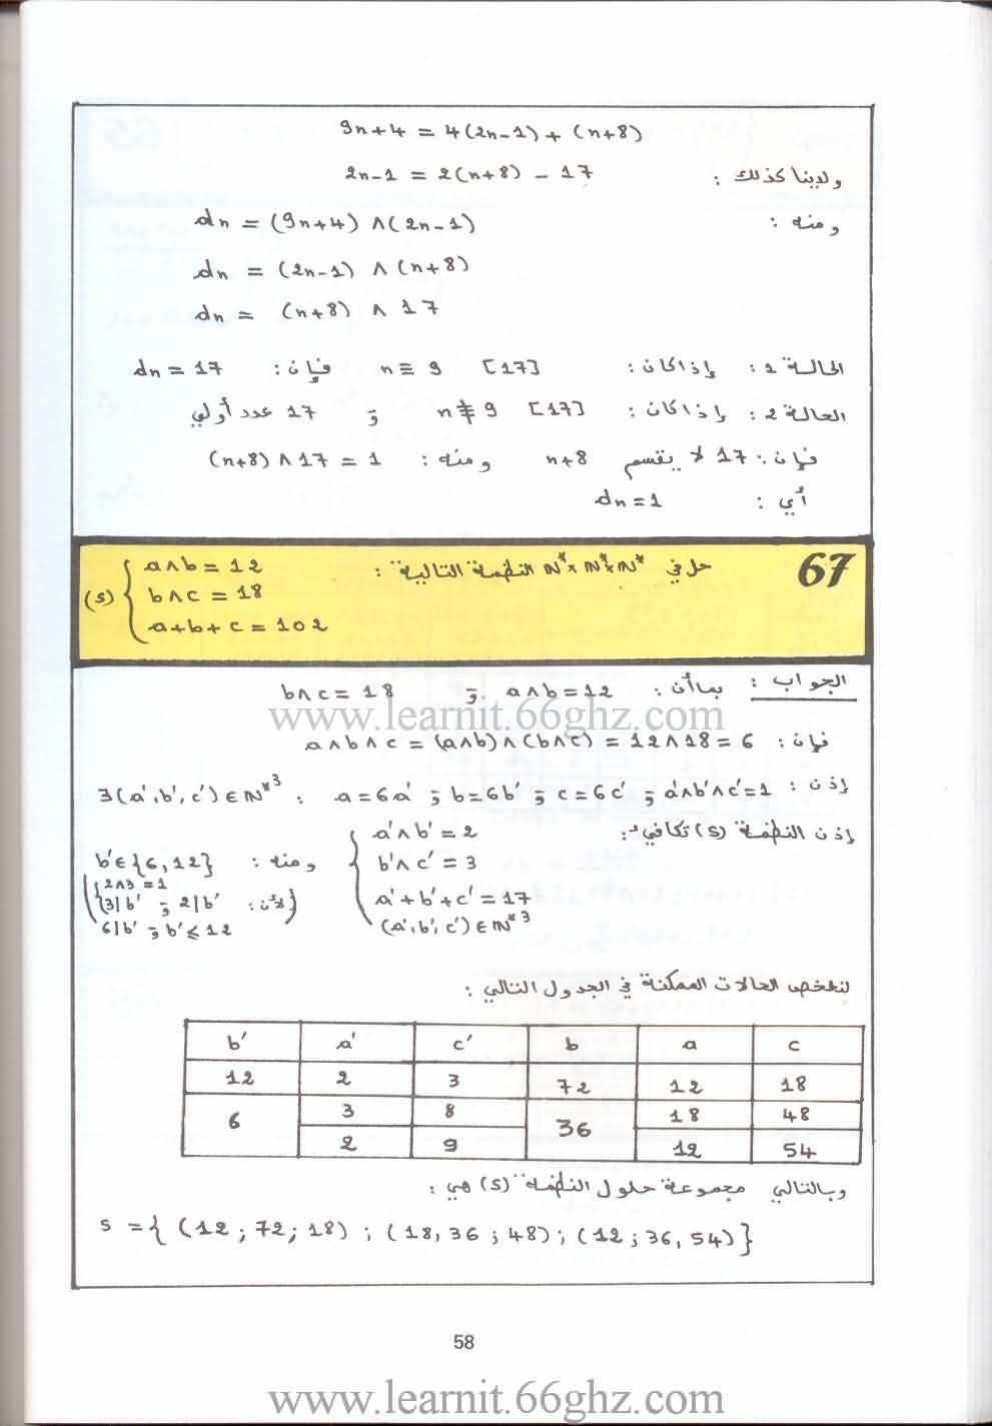 9n+4 = 4(2n-1) + (n+8)
ولدينا كذلك : 2n-1 = 2(n+8) - 17
ومنه : dn = (9n+4) ∧ (2n-1)
dn = (2n-1) ∧ (n+8)
dn = (n+8) ∧ 17
الحالة 1 : إذا كان : n ≡ 9 [17] فإن : dn = 17
الحالة 2 : إذا كان : n ≢ 9 [17] و 17 عدد أولي
فإن : 17 لا يقسم n+8 ومنه : (n+8) ∧ 17 = 1
أي : dn = 1
67
حل في N* x N* x N* النظمة التالية :
(S) { a∧b = 12
b∧c = 18
a+b+c = 102
الجواب : بما أن : a∧b = 12 و b∧c = 18
www.learnit.66ghz.com
فإن : a∧b∧c = (a∧b)∧(b∧c) = 12∧18 = 6
إذن : a=6a' ; b=6b' ; c=6c' ; a'∧b'∧c'=1 : ∃(a',b',c') ∈ N*³
إذن النظمة (S) تكافئ :
{ a'∧b' = 2
b'∧c' = 3
a'+b'+c' = 17
(a',b',c') ∈ N*³
ومنه : b' ∈ {6,12}
(لأن : { 2∧3 = 1
3|b' ; 2|b'
6|b' ; b' ⩽ 12
لنلخص الحالات الممكنة في الجدول التالي :
b' a' c' b a c
12 2 3 72 12 18
6 3 8 36 18 48
2 9 12 54
وبالتالي مجموعة حلول النظمة (S) هي :
S = { (12 ; 72 ; 18) ; (18, 36 ; 48) ; (12 ; 36, 54) }
58
www.learnit.66ghz.com